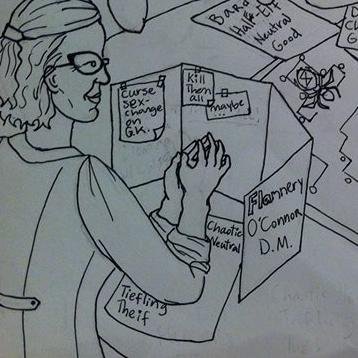 Bard
Half-Elf
Neutral
Good
Curse
sex-
change
on
G.K.
Kill
Them
all
maybe
Flannery
O'Connor
D.M.
Chaotic
Neutral
Tiefling
Theif